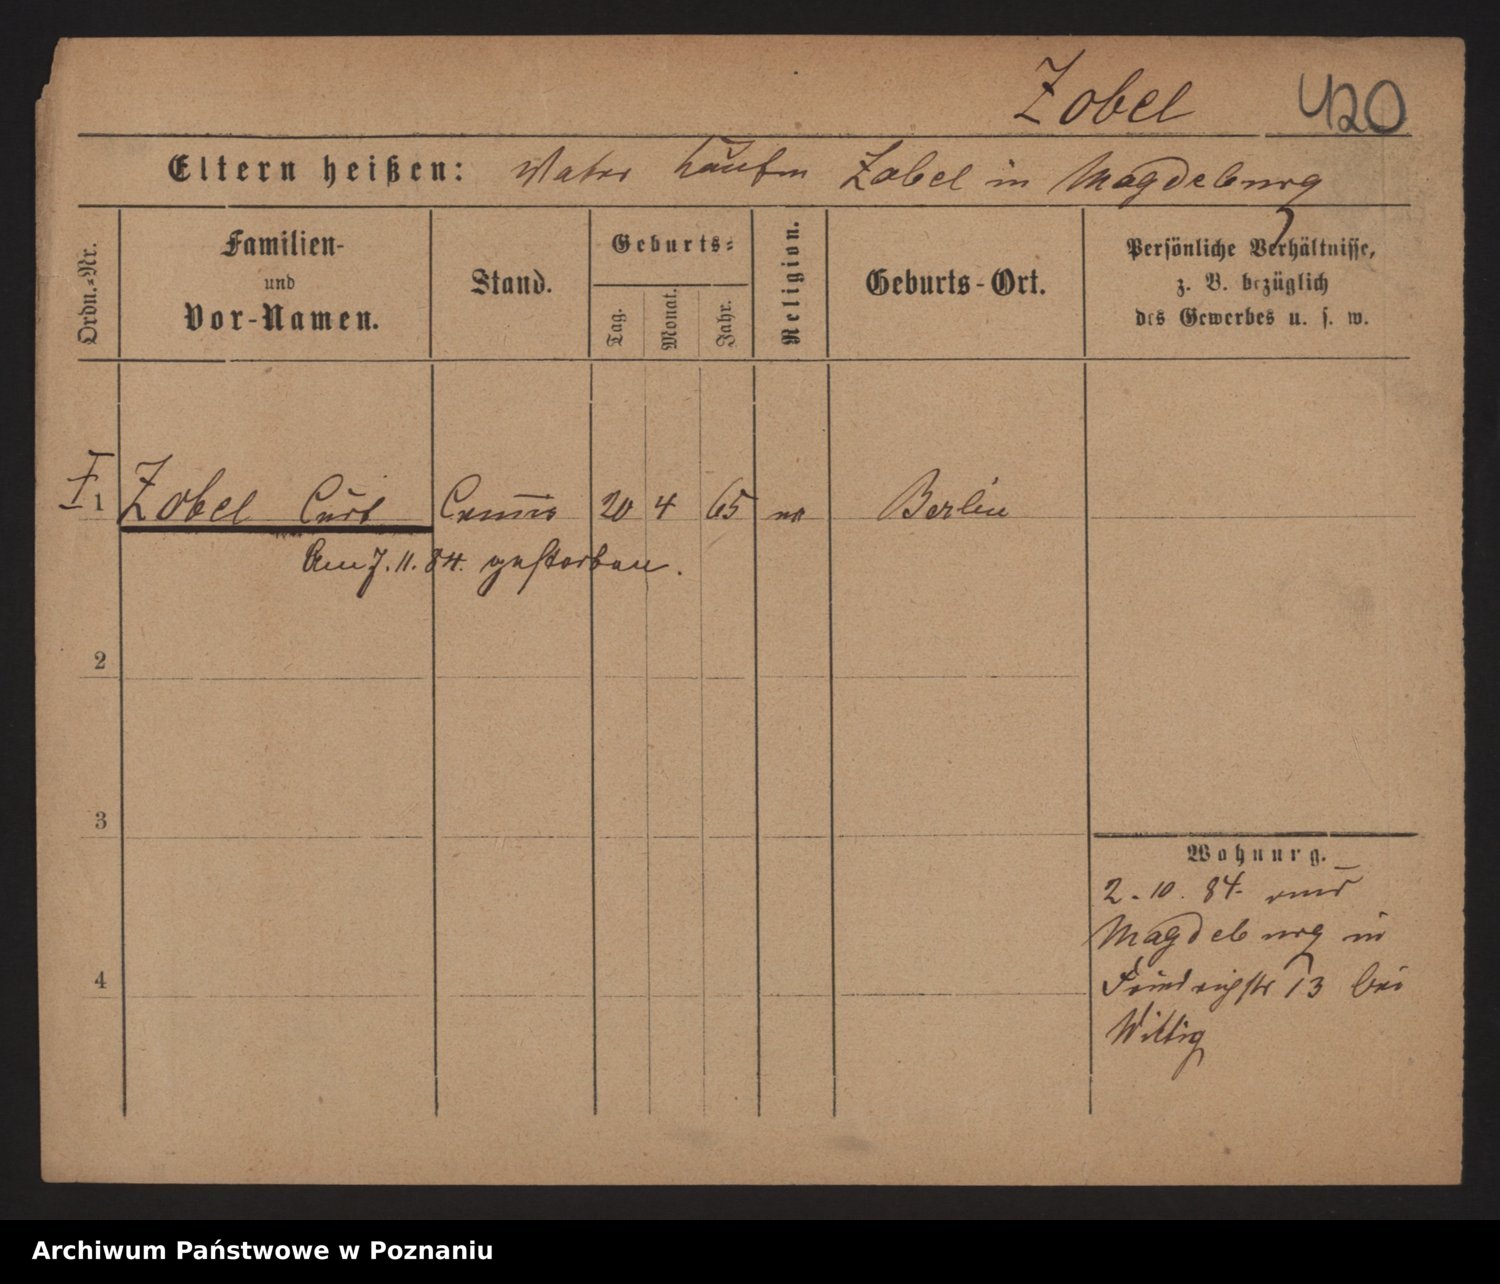 Zobel 420
Eltern heißen: Vater Kaufm Zobel in Magdeburg
Ordn.-Nr.
Familien-
und
Vor-Namen.
Stand.
Geburts-
Tag.
Monat.
Jahr.
Religion.
Geburts-Ort.
Persönliche Verhältnisse,
z. B. bezüglich
des Gewerbes u. s. w.
I
1 Zobel Curt Commis 20 4 65 ev Berlin
Am 7. 11. 84. gestorben.
2
3
4
Wohnung.
2. 10. 84. aus
Magdeburg in
Friedrichstr 13 bei
Wittig
Archiwum Państwowe w Poznaniu